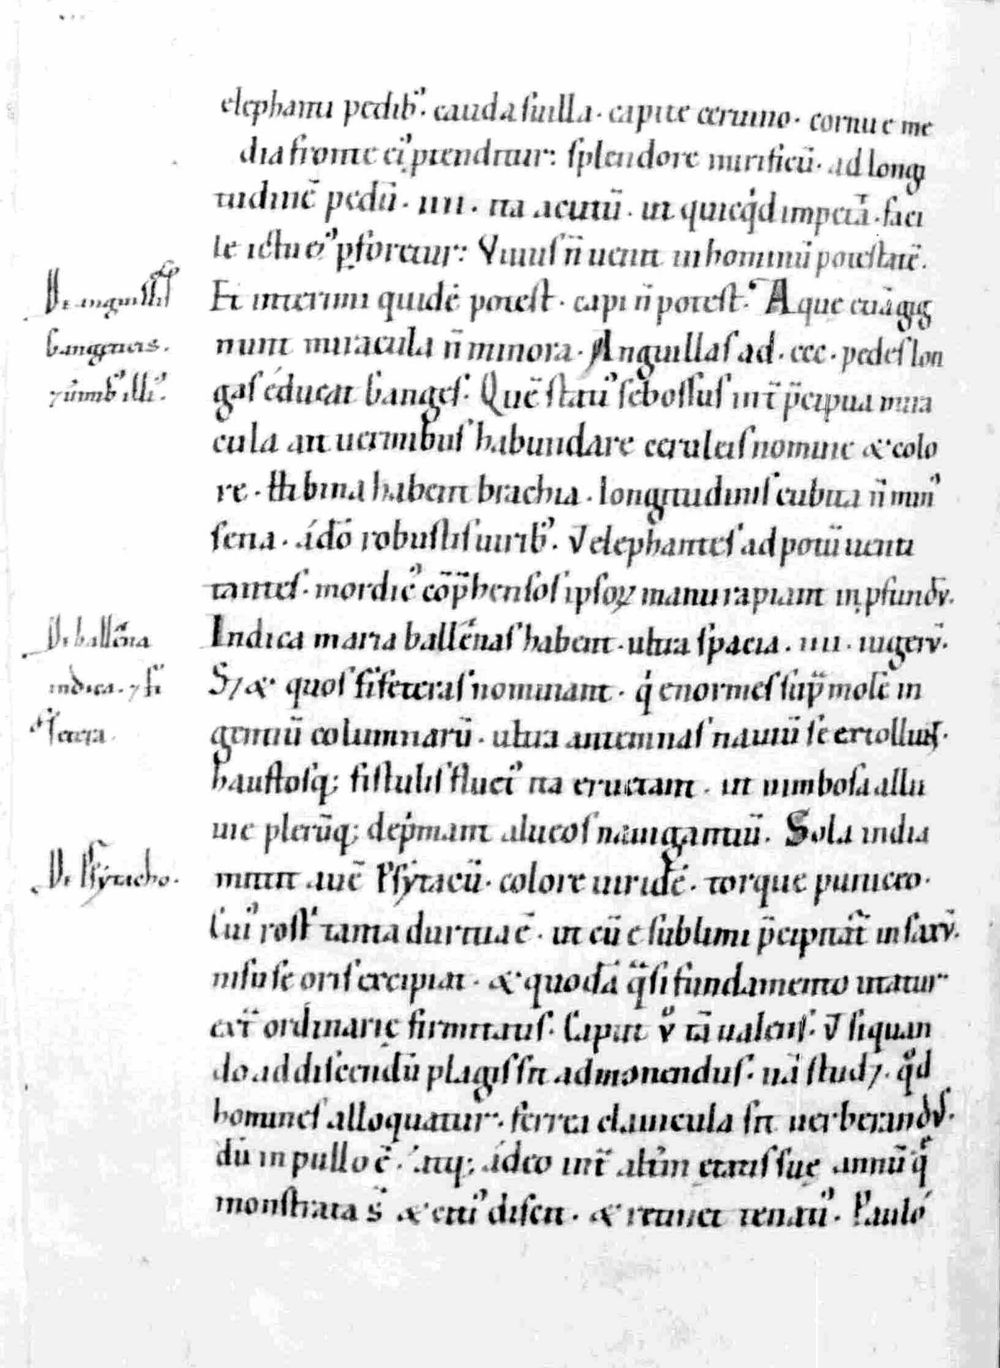 elephanti pedib᾽. cauda suilla. capite ceruino. cornu e me
dia fronte ei᾽ ptenditur: splendore mirificū. ad longi
tudinē pedū. iiii. ita acutū. ut quicq̇d impetat. faci
le ictu ei᾽ pforetur: Viuus n̄ uenit in hominū potestatē.
Et interimi quidē potest. capi n̄ potest. Aque etiā gig
nunt miracula n̄ minora. Anguillas ad. ccc. pedes lon
gas educat Ganges. Quē statī᾽ sebossus int̄ p̄cipua mira
cula ait uermibus habundare ceruleis nomine & colo
re. Hi bina habent brachia. longitudinis cubita n̄ min᾽
sena. ádō robustis uirib᾽. V elephantes ad potū uenti
tantes. mordic᾽ cōp̄hensos ipsoꝝ manu rapiant in pfundū.
Indica maria ballenas habent. ultra spacia. iiii. iugerū.
S; & quos fiseteras nominant. q̇ enormes sup̄ molē in
gentiū columnarū. ultra antemnas nauiū se extollunt.
haustosq; fistulis fluct᾽ ita eructant. ut nimbosa allu
uie plerūq; dep̄mant alueos nauigantiū. Sola india
mittit auē Psytacū. colore uiridē. torque puniceo.
Cui᾽ rost᾽ tanta duritia ē. ut cū e sublimi p̄cipitat in saxū.
nisu se oris excipiat. & quodā q̄si fundamento utatur
ext̄ ordinarię firmitatis. Caput ů tā ualens. V siquan
do ad discendū plagis sit admonendus. nā stud;. qd
homines alloquatur. ferrea clauicula sit uerberandū.
dū in pullo ē. atq; ádeo int̄ altm̄ etatis suę annū q̄
monstrata s̄ & citi᾽ discit. & retinet tenati᾽. Paulo
De anguillis
Gangeticis.
⁊ uermib᾽ illi᾽.
De ballena
indica. ⁊ fi
setera.
De Psytacho.